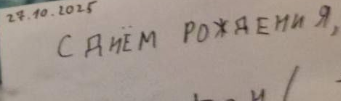 27.10.2025
С ДНЁМ РОЖДЕНИЯ,